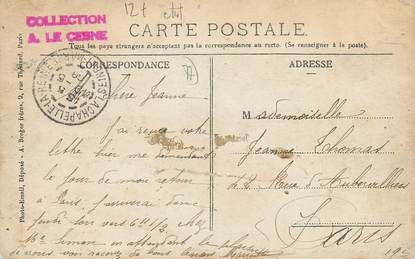 12t
COLLECTION
A. LE CESNE
CARTE POSTALE.
Tous les pays étrangers n'acceptent pas la correspondance au recto. (Se renseigner à la poste).
CORRESPONDANCE
ADRESSE
Photo-Émail, Déposé - A. Breger frères, 9, rue Thénard, Paris
LA CHAPELLE-LA-REINE
Chère Jeanne
J'ai reçu votre
lettre hier me demandant
le jour de mon retour
à Paris. J'arriverai donc
jeudi soir vers 6H 1/2 chez
Me Simon en attendant le
de nous voir recevez de vous
Mademoiselle
Jeanne Thomas
12 Rue d'Aubervilliers
Paris
19e